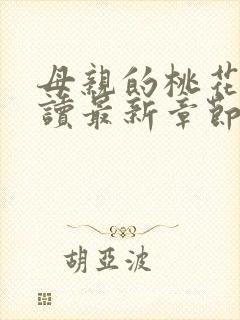 母親的桃花
讀最新章節
胡亞波